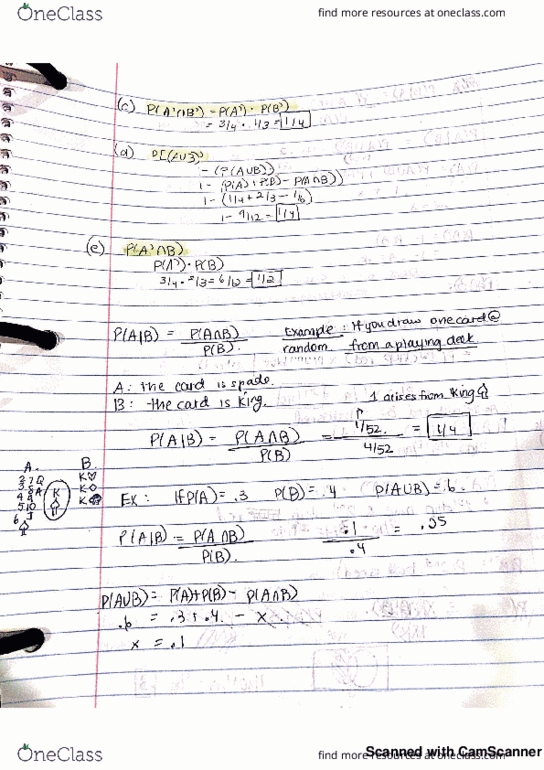 OneClass
find more resources at oneclass.com
(c) P(A'∩B') = P(A') · P(B')
= 3/4 · 1/3 = 1/4
(d) P[(AUB)'
- (P(AUB))
1 - (P(A) + P(B) - P(A∩B))
1 - (1/4 + 2/3 - 1/6)
1 - 9/12 = 1/4
(e) P(A'∩B)
P(A') · P(B)
3/4 · 2/3 = 6/12 = 1/2
P(A|B) = P(A∩B) / P(B). Example: If you draw one card @
random from a playing deck
A: the card is spade.
B: the card is king. 1 arises from King
P(A|B) = P(A∩B) / P(B) = 1/52 / 4/52 = 1/4
A. B.
2 7 Q K♡
3 8 A K K◇
4 9 K
5 10
6 J
EX: If P(A) = .3 P(B) = .4 P(AUB) = .6
P(A|B) = P(A∩B) / P(B). .1 / .4 = .25
P(AUB) = P(A) + P(B) - P(A∩B)
.6 = .3 + .4 - x
x = .1
Scanned with CamScanner
OneClass
find more resources at oneclass.com